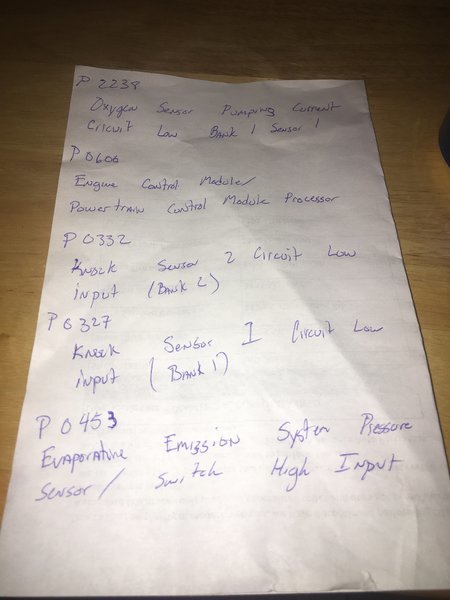 P 2238
Oxygen Sensor Pumping Current
Circuit Low Bank 1 Sensor 1
P0606
Engine Control Module/
Powertrain Control Module Processor
P0332
Knock Sensor 2 Circuit Low
input (Bank 2)
P0327
Knock Sensor 1 Circuit Low
input (Bank 1)
P 0453
Evaporative Emission System Pressure
Sensor/ Switch High Input